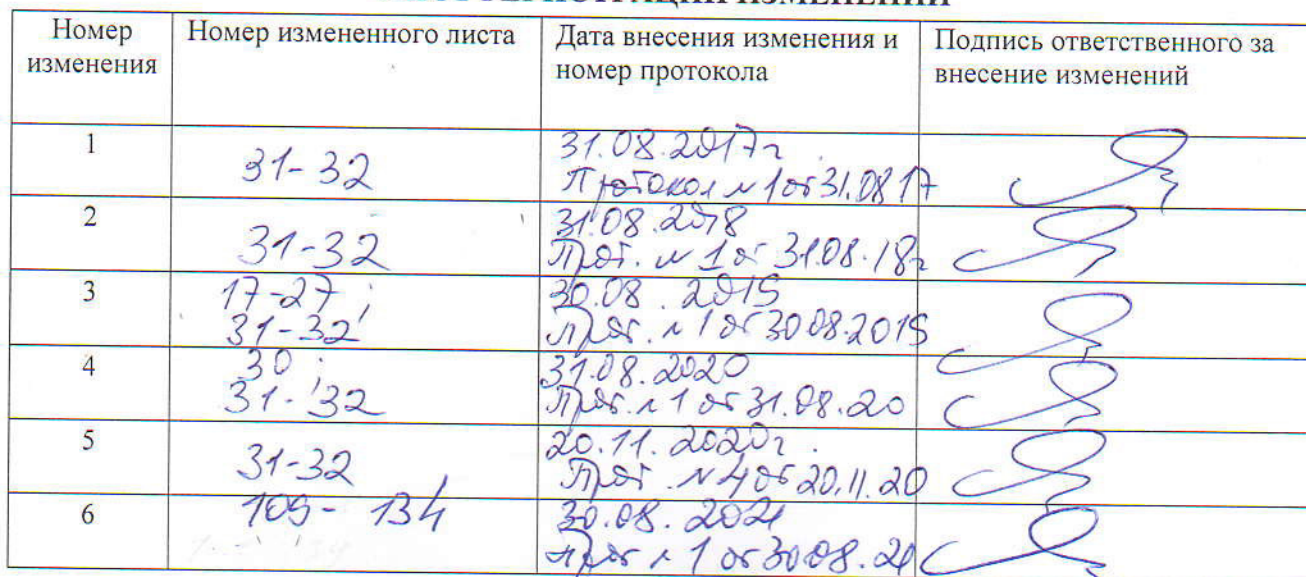 ЛИСТ РЕГИСТРАЦИИ ИЗМЕНЕНИЙ
Номер изменения
Номер измененного листа
Дата внесения изменения и номер протокола
Подпись ответственного за внесение изменений
1
31-32
31.08.2017г
Протокол №1 от 31.08 17
2
31-32
31.08.2018
Прот. №1 от 31.08.18г
3
17-27;
31-32
30.08.2019
Прот. №1 от 30 08.2019
4
30;
31-32
31.08.2020
Прот. №1 от 31.08.20
5
31-32
20.11.2020г.
Прот. №4 от 20.11.20
6
109-134
30.08.2021
Прот №1 от 30.08.21